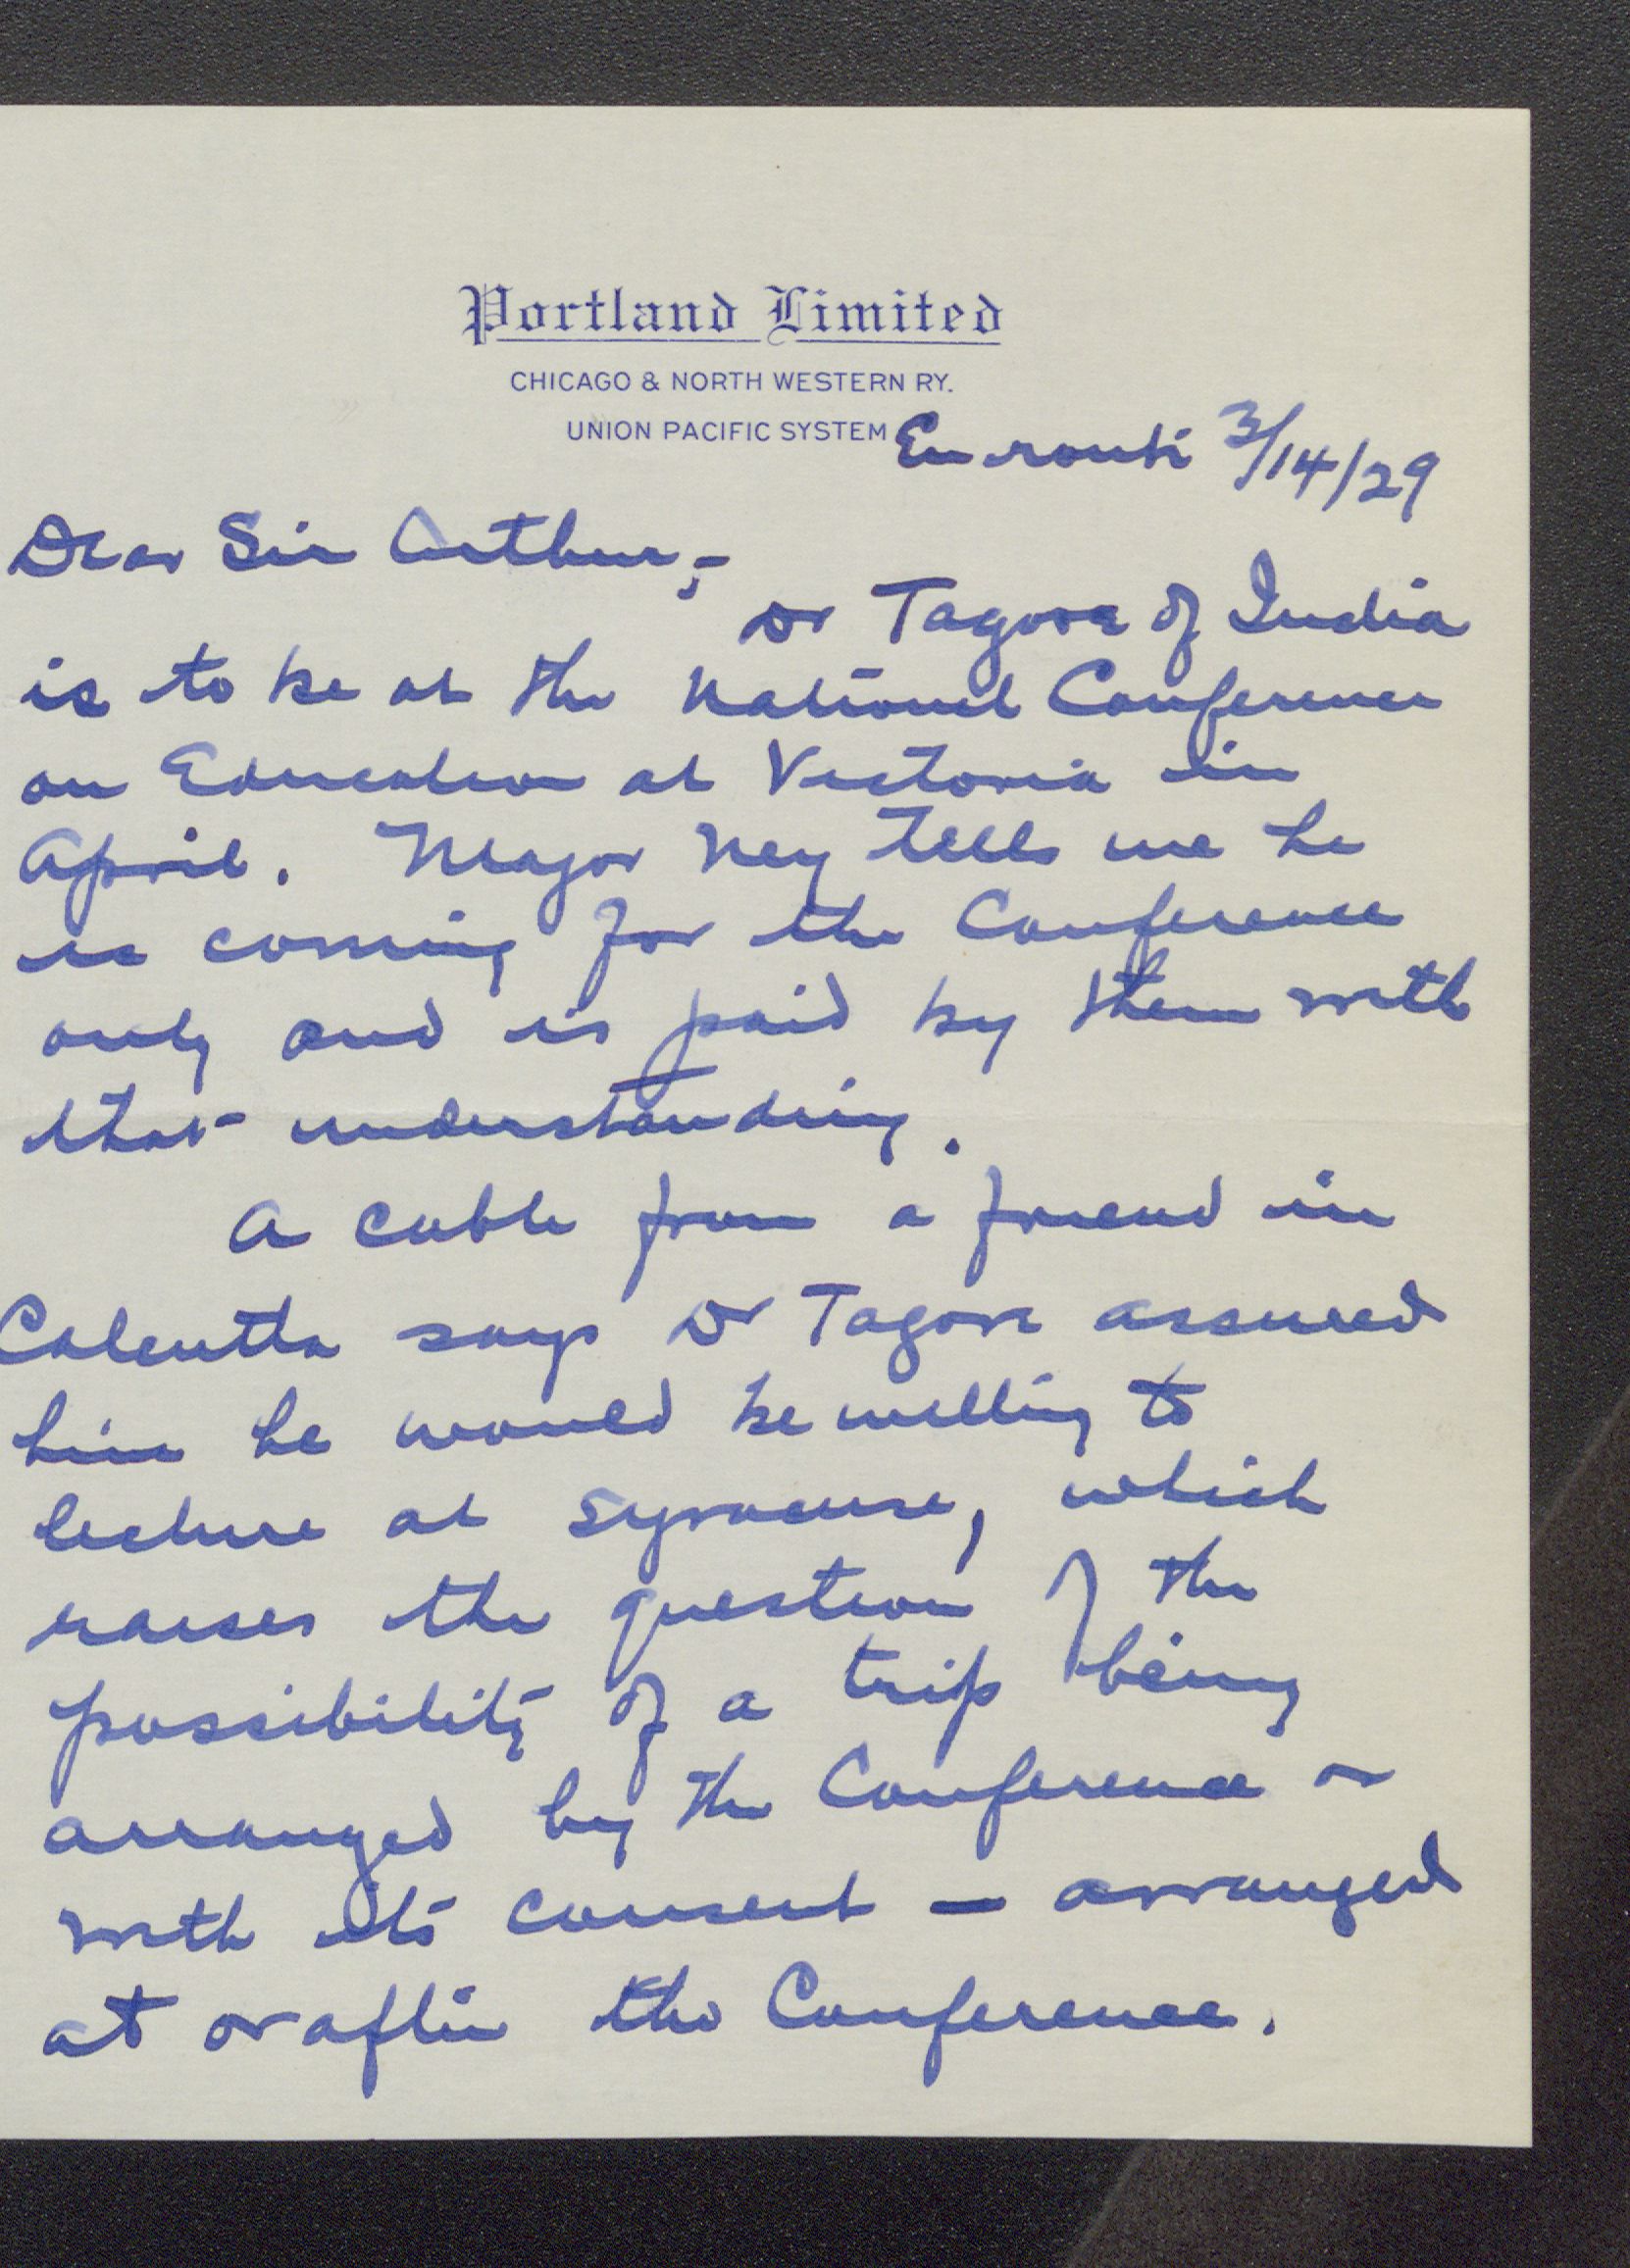 Portland Limited
CHICAGO & NORTH WESTERN RY.
UNION PACIFIC SYSTEM
En route 3/14/29
Dear Sir Arthur,-
Dr Tagore of India
is to be at the National Conference
on Education at Victoria in
April. Major Ney tells me he
is coming for the Conference
only and is paid by them with
that understanding.
A cable from a friend in
Calcutta says Dr Tagore assured
him he would be willing to
lecture at Syracuse, which
raises the question of the
possibility of a trip being
arranged by the Conference or
with its consent — arranged
at or after the Conference.